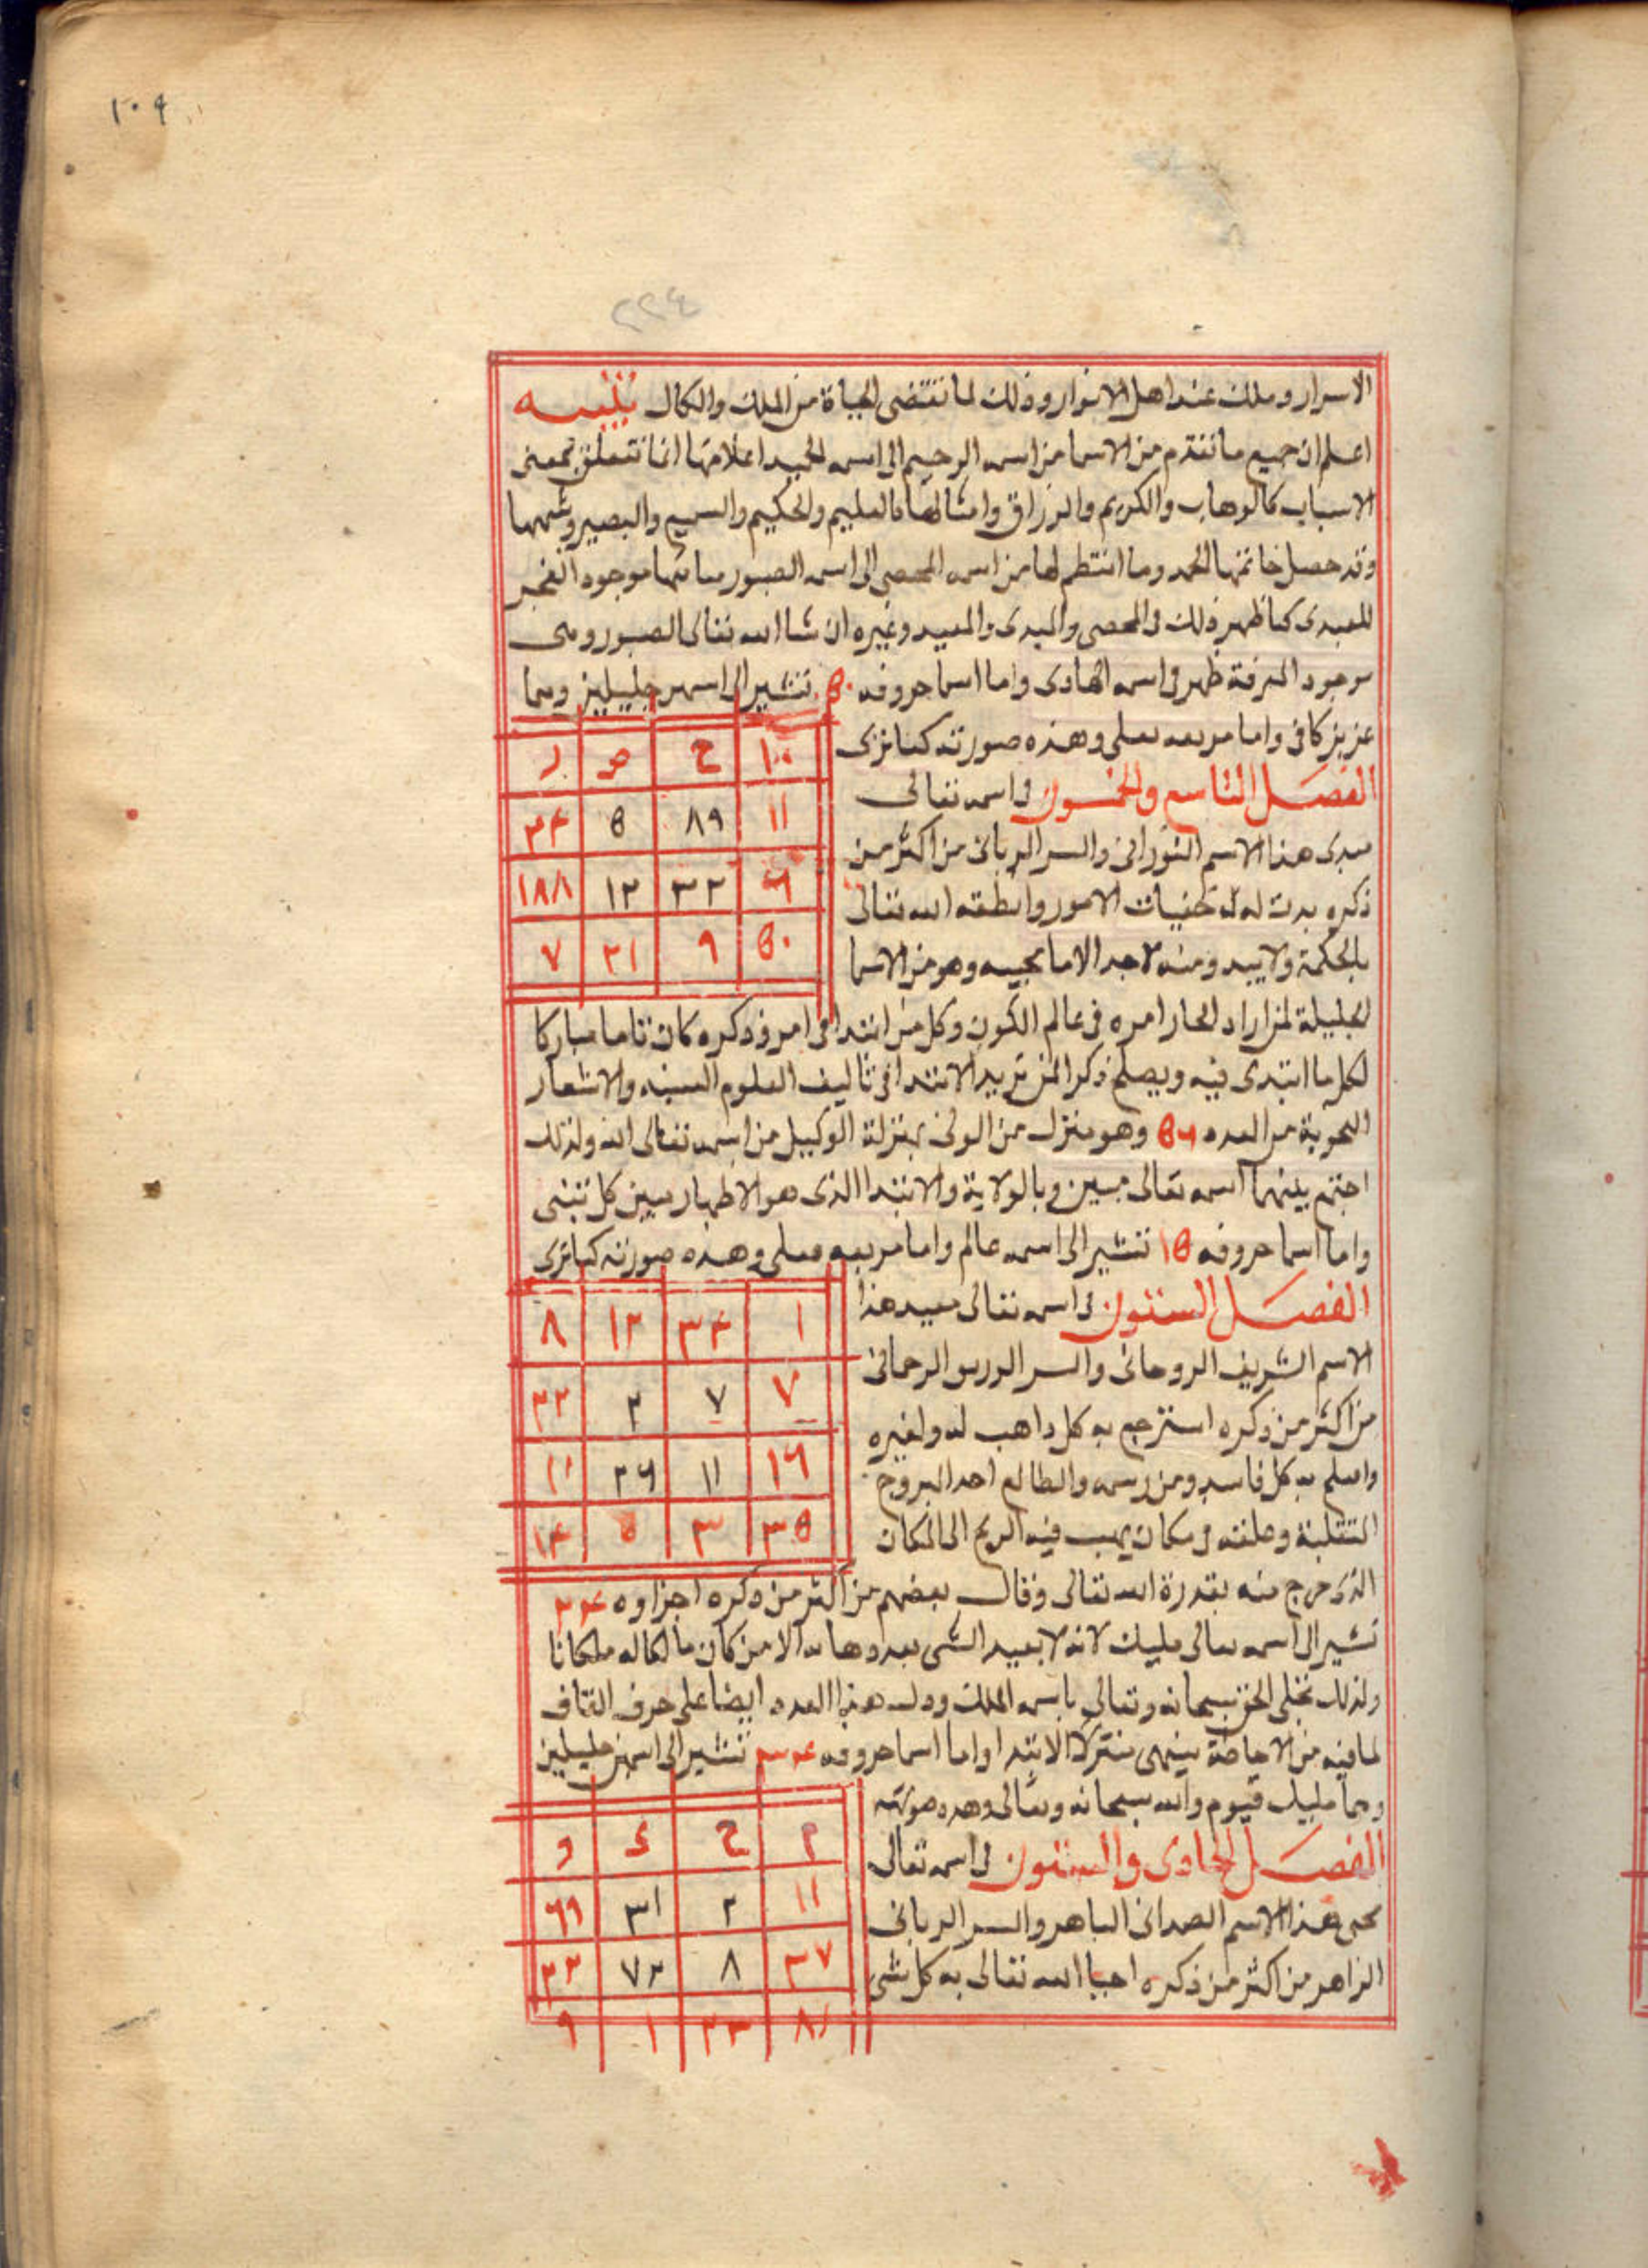 ١٠٩
٢٢٤
الاسرار وملك عند اهل الانوار وذلك لما تقتضى الحياة من الملك والكمال تنبيه
اعلم ان جميع ما تقدم من الاسما من اسمه الرحيم الى اسمه الحميد اعلامها انما تتعلق بمعنى
الاسباب كالوهاب والكريم والرزاق وامثالها فالعليم والحكيم والسميع والبصير وشبهها
وقد حصل خاتمتها الحمد وما انتظم لها من اسمه المحصى الى اسمه الصبور موجود
للمبدى كما ظهر ذلك فى المحصى والمبدى والمعيد وغيره ان شا الله تعالى الصبور
موجود المعرفة ظهر فى اسمه الهادى واما اسما حروفه ٥٠ تشير الى اسمين جليلين وهما
عزيز كافى واما مربعه فعلى وهذه صورته كما ترى
١٠٠ ح ص ر
١١ ٨٩ ٥ ٣٤
٦ ٣٢ ١٢ ١٨٨
٥٠ ٩ ٢١ ٧
الفصل التاسع والخمسون فى اسمه تعالى
مبدى هذا الاسم النورانى والسر الربانى من اكثر من
ذكره بدت له خفيات الامور وانطقه الله تعالى
بالحكمة ومنه وهو من الاسما
الجليلة لمن اراد امره فى عالم الكون وكل من ابتدا فى امر وذكره كان تاما مباركا
لكل ما ابتدى فيه ويصلح ذكرا لمن يريد الابتدا فى تاليف العلوم السنيه والاشعار
من العدد ٥٦ وهو منزل من الولى بمنزلة الوكيل من اسمه تعالى الله ولذلك
اجتمع بينهما اسمه تعالى مبين وبالولاية والابتدا الذى هو الاظهار
واما اسما حروفه ١٥ تشير الى اسمه عالم واما مربعه فعلى وهذه صورته كما ترى
١ ٣٤ ١٢ ٨
٧ ٧ ٢ ٣٢
١٦ ١١ ٢٦ ١١
٣٥ ٣ ٥ ١٤
الفصل الستون فى اسمه تعالى معيد هذا
الاسم الشريف الروحانى والسر الرحمانى
من اكثر من ذكره استرجع به كل ذاهب له ولغيره
واصلح به كل فاسد ومن رسمه والطالع احد البروج
المنقلبة وعلقه فى مكان يهب فيه الريح الى المكان
الذى خرج منه بقدرة الله تعالى وقال بعضهم من اكثر من ذكره اجزاوه
تشير الى اسمه تعالى مليك لانه لا يعيد الشى بعد الا من كان مالكا له ملكا
ولذلك تجلى الحق سبحانه وتعالى باسمه الملك ودل هذا العدد ايضا على حرف القاف
لما فيه من الاحاطة الابتدا واما اسما حروفه تشير الى اسمين جليلين
وهما مليك قيوم والله سبحانه وتعالى وهذه صورته
م ح ى د
١١ ٢ ٣١ ٦٩
٣٧ ٨ ٧٢ ٣٢
٨١ ٢٣ ١ ٩
الفصل الحادى والستون فى اسمه تعالى
محيى هذا الاسم الصمدانى الباهر والسر الربانى
الزاهر من اكثر من ذكره احيا الله تعالى به كل شى